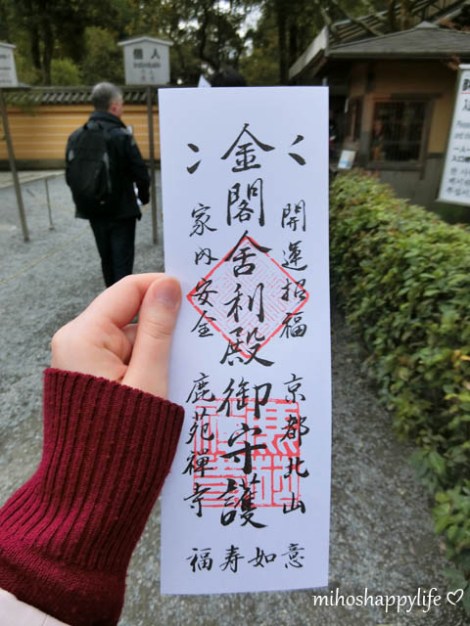 個人
開運招福 京都北山
金閣舎利殿御守護
家内安全 鹿苑禪寺
福寿如意
mihoshappylife♡